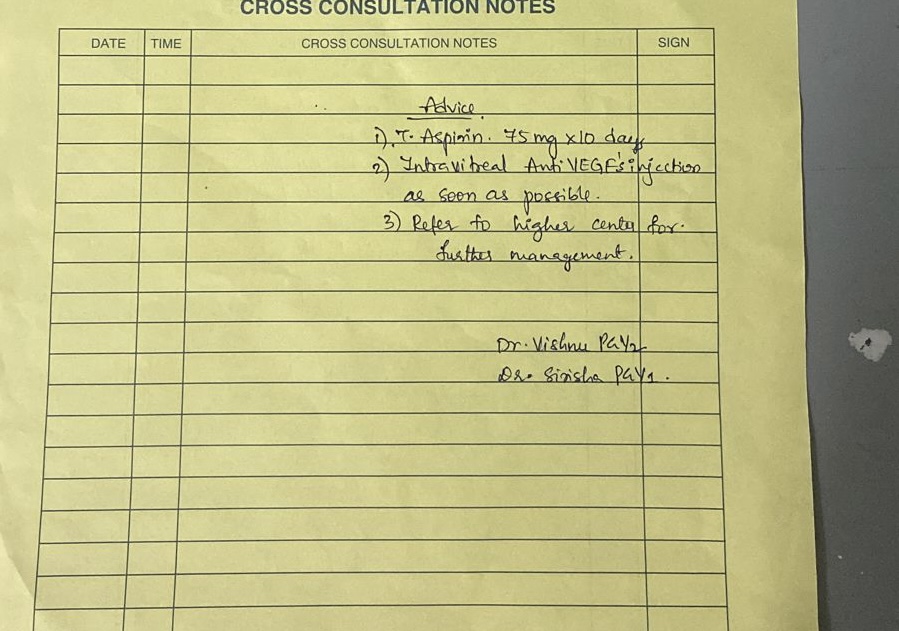 CROSS CONSULTATION NOTES
DATE TIME CROSS CONSULTATION NOTES SIGN
Advice.
1). T. Aspirin. 75 mg x10 days
2) Intravitreal Anti VEGF's injection
as soon as possible.
3) Refer to higher center for.
further management.
Dr. Vishnu PGY2
Dr. Sirisha PGY1.